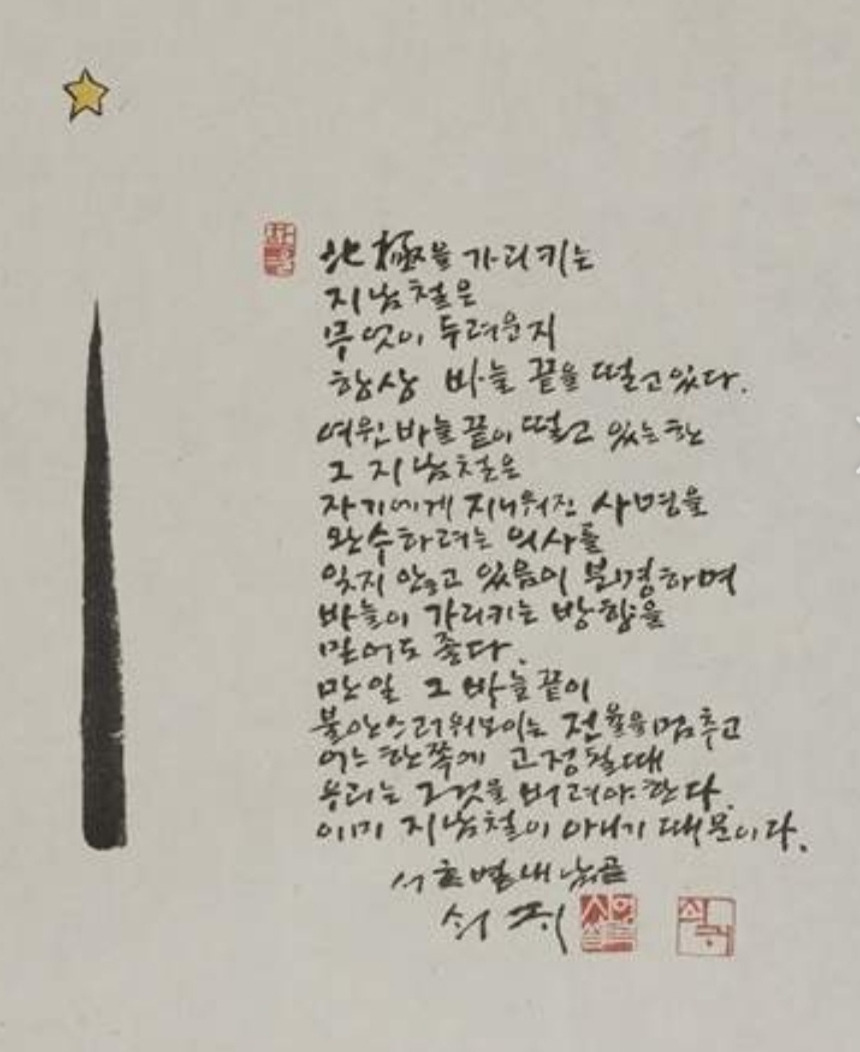 北極을 가리키는
지남철은
무엇이 두려운지
항상 바늘 끝을 떨고 있다.
여윈 바늘 끝이 떨고 있는 한
그 지남철은
자기에게 지니워진 사명을
완수하려는 의사를
잊지 않고 있음이 분명하며
바늘이 가리키는 방향을
믿어도 좋다.
만일 그 바늘 끝이
불안스러워 보이는 전율을 멈추고
어느 한쪽에 고정될 때
우리는 그것을 버려야 한다.
이미 지남철이 아니기 때문이다.
쇠귀